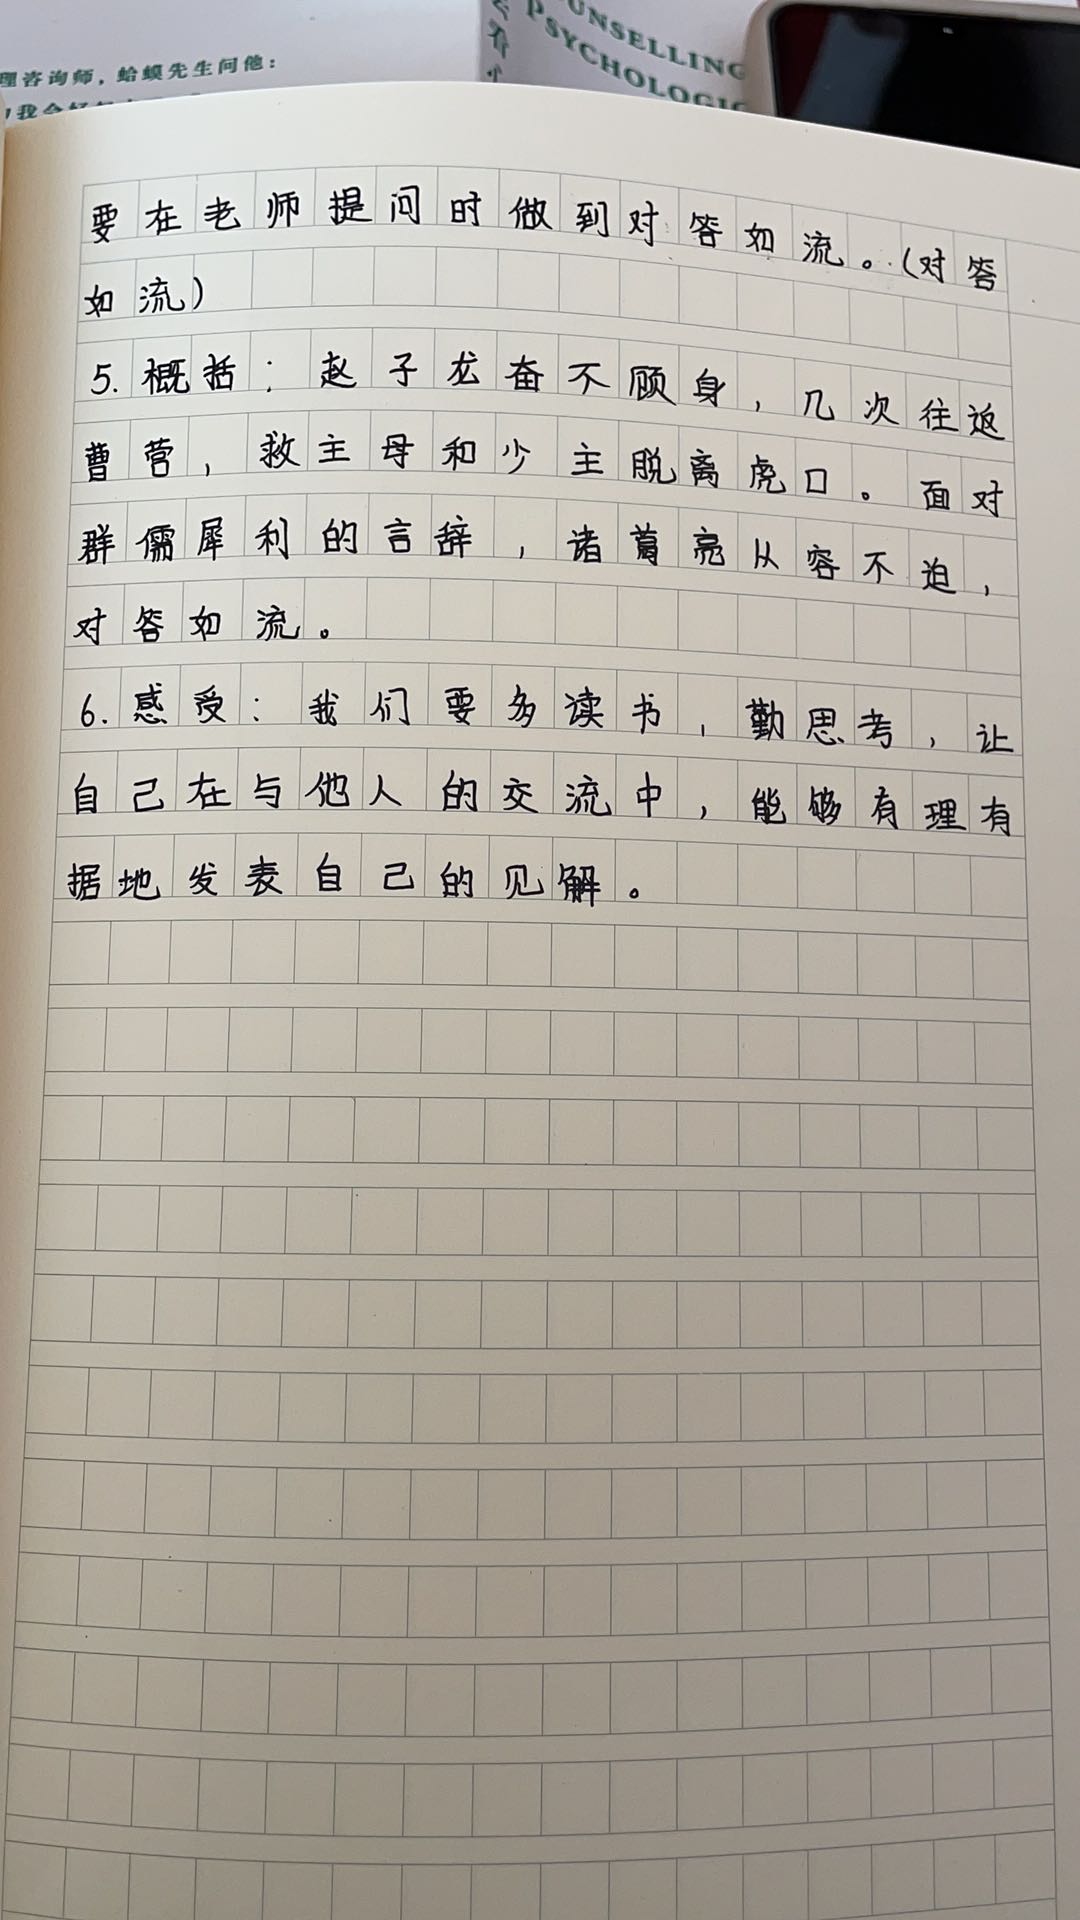 UNSELLING
PSYCHOLOGIC
理咨询师，蛤蟆先生问他：
要在老师提问时做到对答如流。(对答
如流)
5.概括：赵子龙奋不顾身，几次往返
曹营，救主母和少主脱离虎口。面对
群儒犀利的言辞，诸葛亮从容不迫，
对答如流。
6.感受：我们要多读书，勤思考，让
自己在与他人的交流中，能够有理有
据地发表自己的见解。